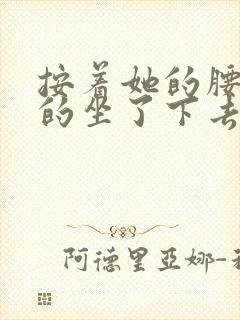 按着她的腰
的坐了下去
阿德里亚娜-